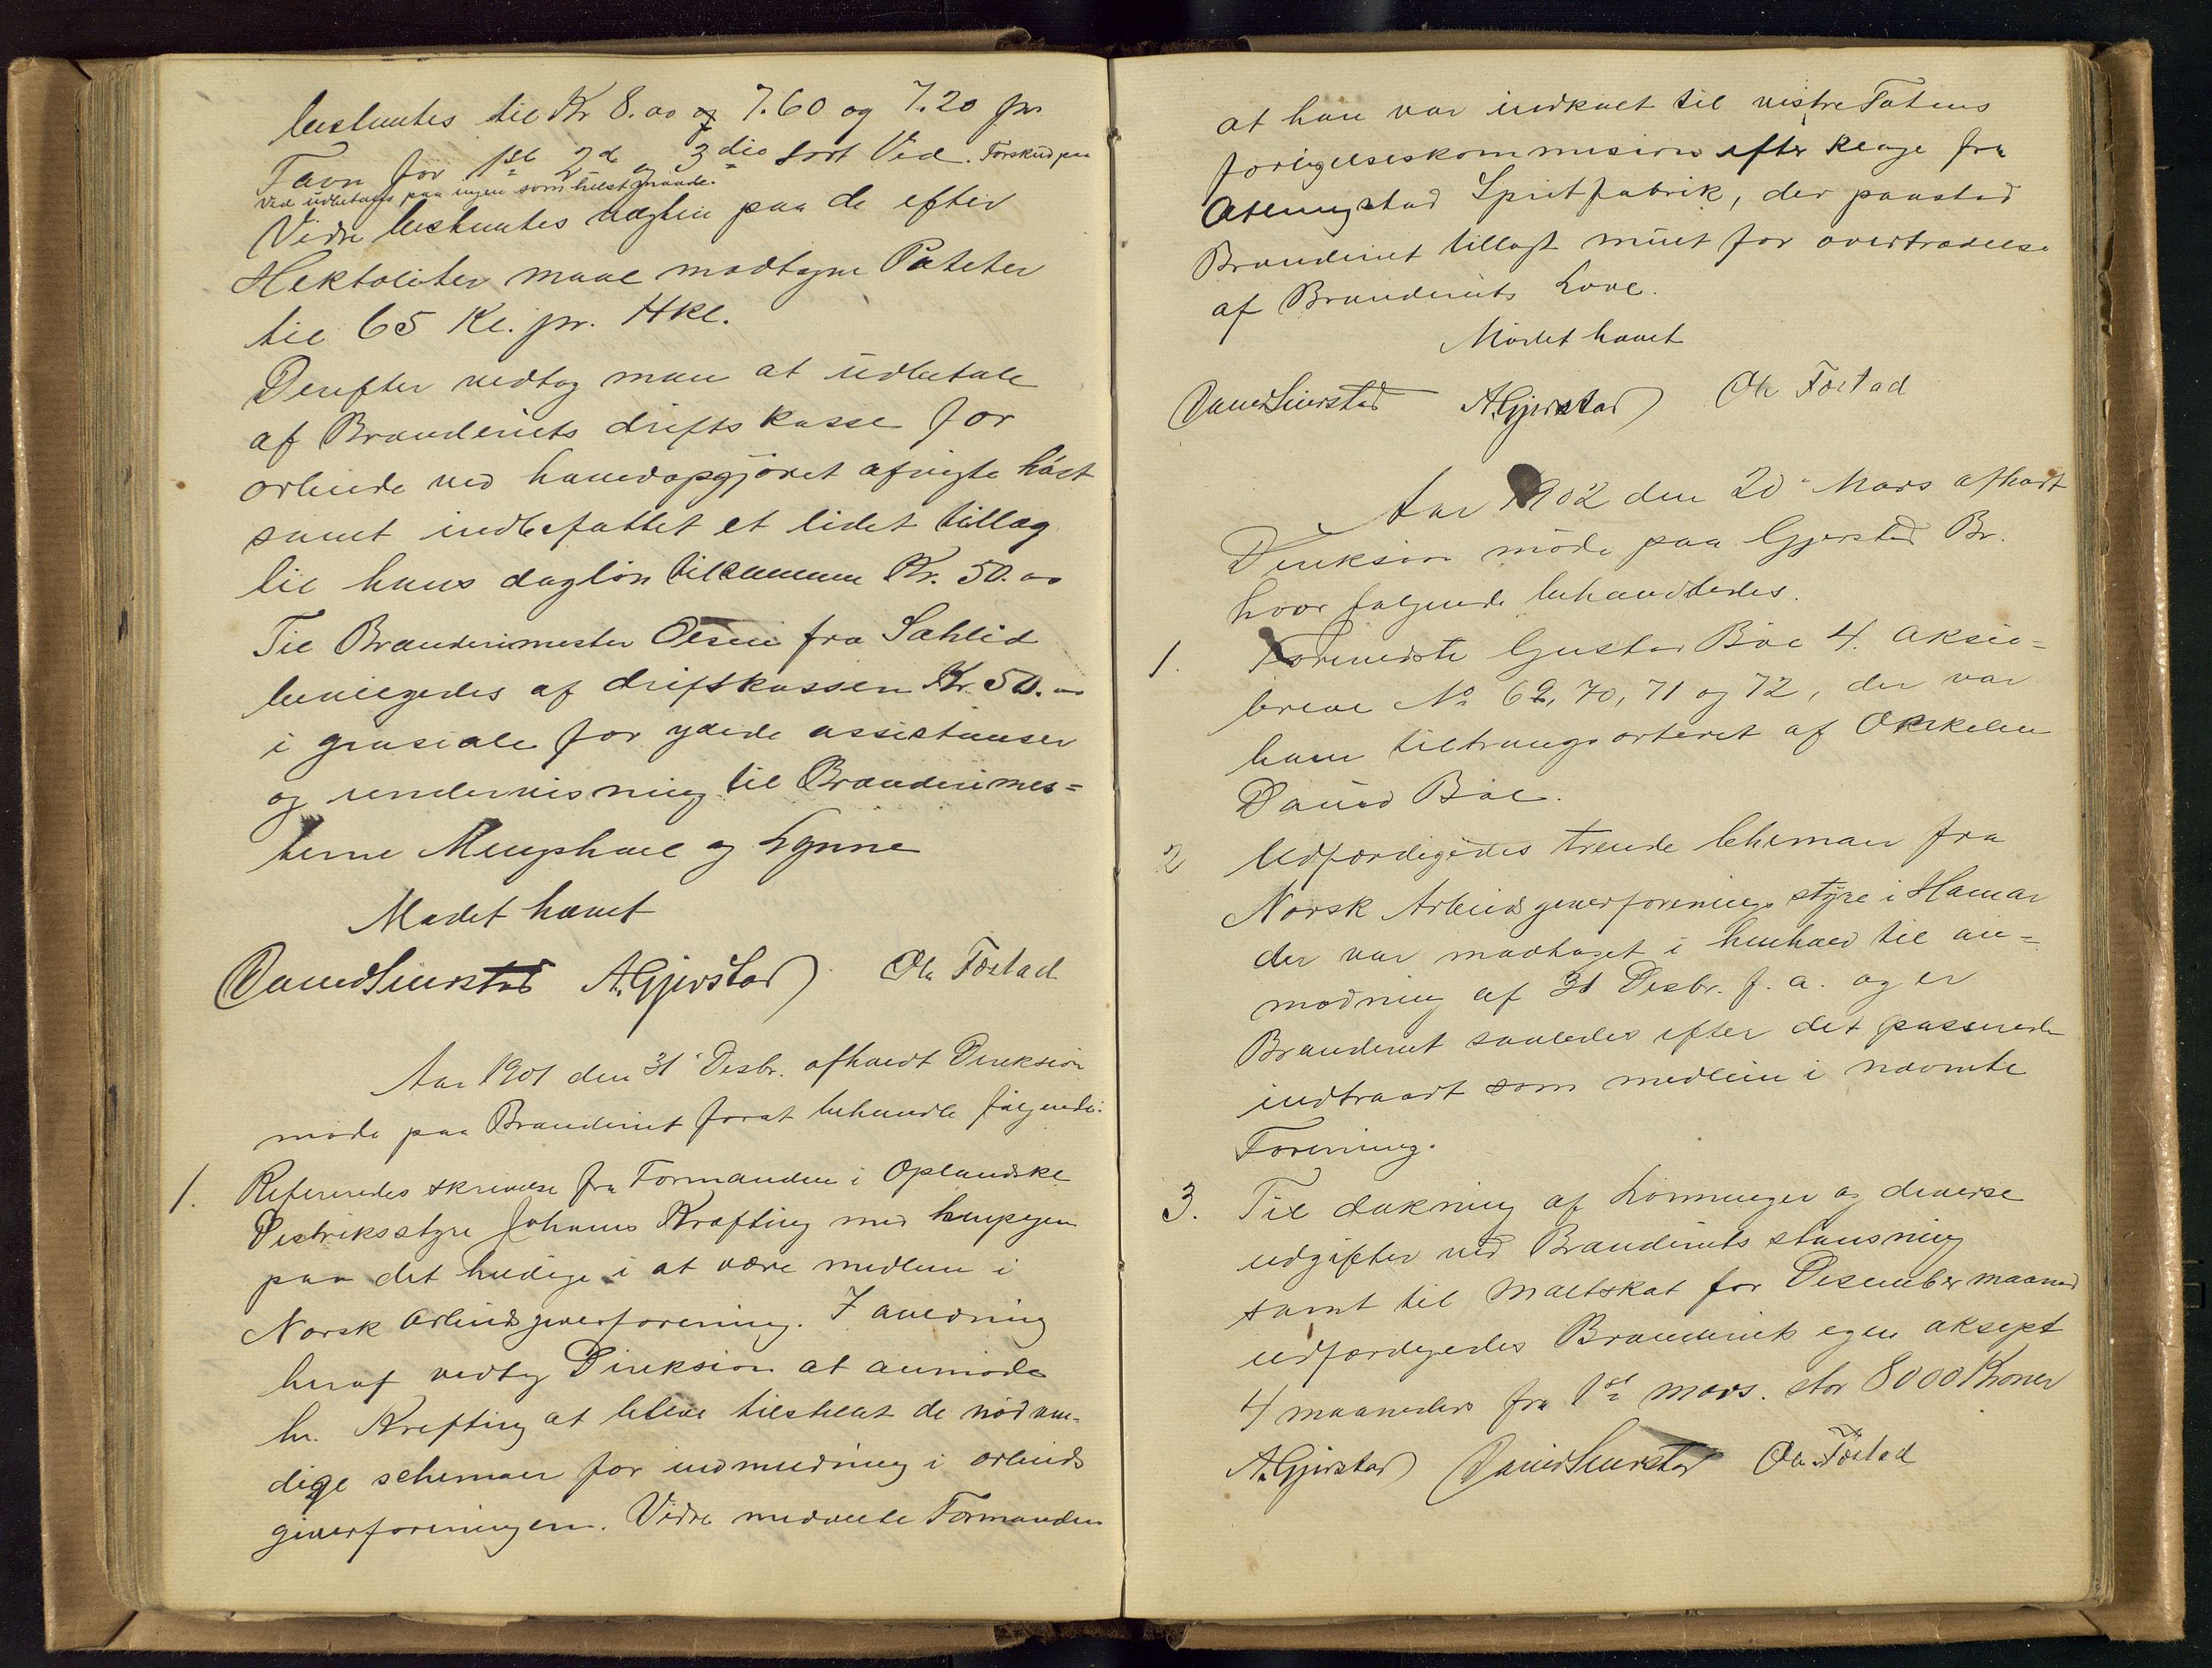 bestemtes til Kr 8.00 og 7.60 og 7.20 pr.
Favn for 1ste 2d og 3die sort Ved. Forskud paa
Ved udbetales paa ingen somhelst maade.
Vidre bestemtes vægten paa de efter
Hektoliter maal modtagne Poteter
til 65 Kl. pr. Hkl.
Derefter vedtog man at udbetale
af Brænderiets driftskasse for
arbeide ved hovedopgjøret afvigte høst
samt indbefattet et lidet tillæg
til hans dagløn tilsammen Kr. 50.00
Til Brænderimester Olsen fra Sahlid
bevilgedes af driftskassen Kr. 50.00
i grasiale for ydede assistanser
og undervisning til Brænderimes=
terne Mengshoel og Lynne
Mødet hævet
A. Gjerstad Ole Fostad
Aar 1901 den 31' Desbr. afholdt Direksion
møde paa Brænderiet forat behandle følgende:
1. Refereredes skrivelse fra Formanden i Oplandske
Distriksstyre Johannes Krefting med henpegen
paa det heldige i at være medlem i
Norsk arbeidsgiverforening. I anledning
heraf vedtog Direksion at anmode
hr. Krefting at blive tilstillet de nødven-
dige schemaer for indmeldning i arbeids
giverforeningen. Vidre meddelte Formanden
at han var indkalt til vestre Totens
forligelseskommision efter klage fra
Atlungstad Spritfabrik, der paastod
Brænderiet tillagt mulct for overtrædelse
af Brænderiets Love.
Mødet hævet
A. Gjerstad Ole Fostad
Aar 1902 den 20' Mars afholdt
Direksion møde paa Gjerstad Br.
hvor følgende behandledes.
1. Noteredes Gustav Bøe 4. aksie=
breve No 69, 70, 71 og 72, der var
ham tiltransporteret af Onkelen
David Bøe.
2 Udfærdigedes trende schemaer fra
Norsk Arbeidsgiverforenings styre i Hamar
der var modtaget i henhold til an=
modning af 31 Desbr. f. a. og er
Brænderiet saaledes efter det passerede
indtraadt som medlem i nævnte
Forening.
3. Til dækning af Lønninger og diverse
udgifter ved Brænderiets stansning
samt til maltskat for Desember maaned
udfærdigedes Brænderiets egen aksept
4 maaneders fra 1ste mars. stor 8000 Kroner
A. Gjerstad Ole Fostad